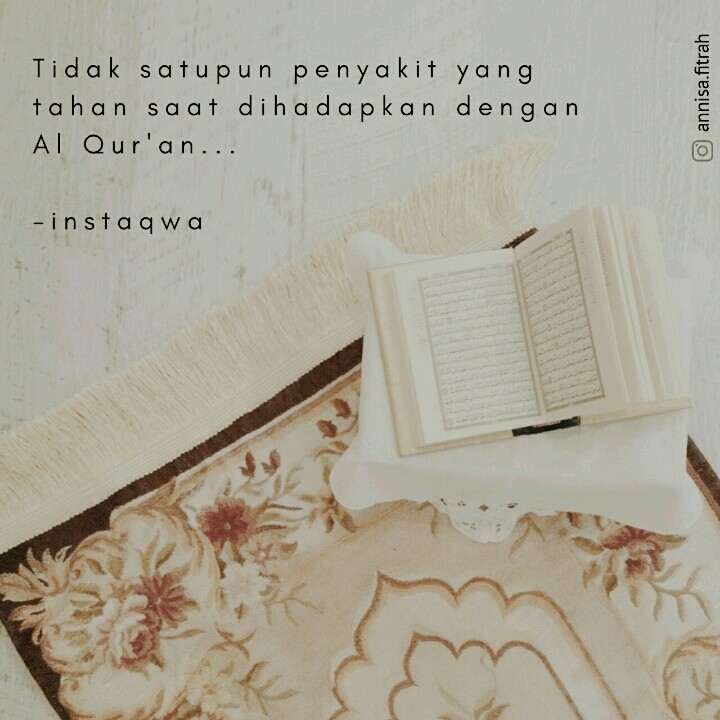 Tidak satupun penyakit yang
tahan saat dihadapkan dengan
Al Qur'an...
-instaqwa
annisa.fitrah